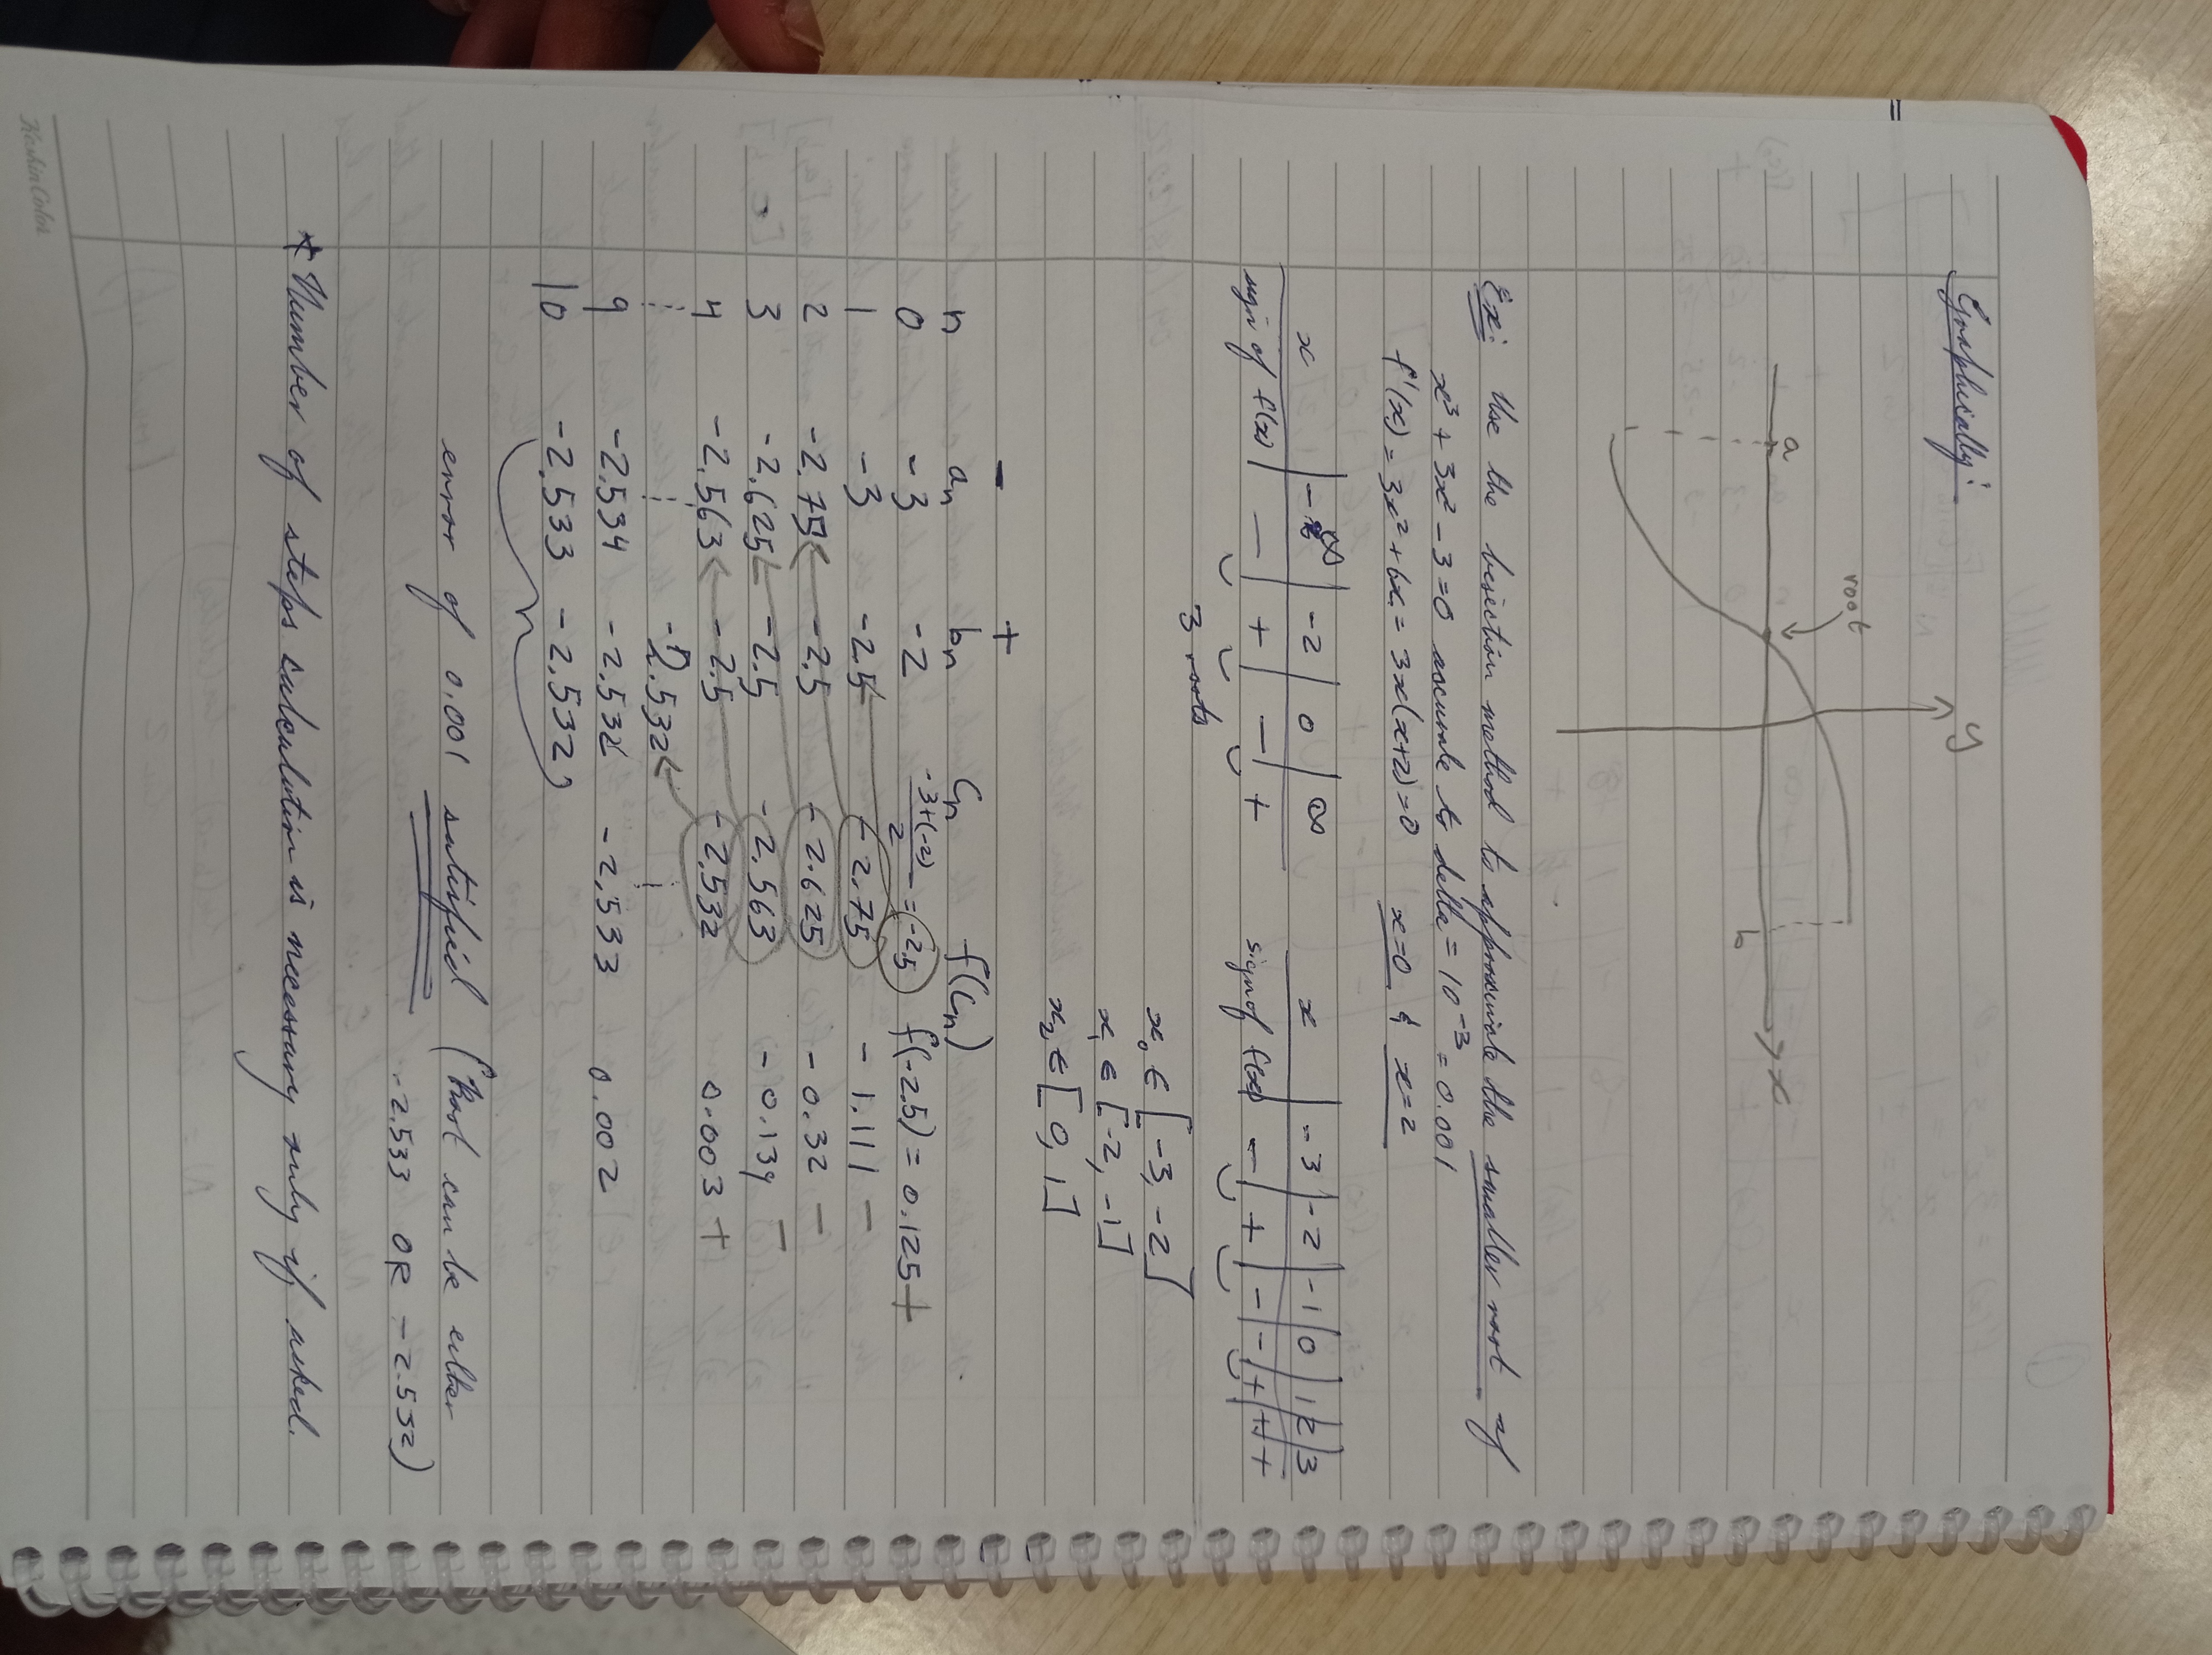 Graphically:
y
root
a
b
x
Ex: Use the bisection method to approximate the smaller root of
x³ + 3x² - 3 = 0 accurate to delta = 10⁻³ = 0.001
f'(x) = 3x² + 6x = 3x(x+2) = 0 x=0 & x=2
x | -∞ | -2 | 0 | ∞
sign of f(x) | - | + | - | +
3 roots
x | -3 | -2 | -1 | 0 | 1 | 2 | 3
sign of f(x) - | + | - | - | + | + | +
x₀ ∈ [-3, -2]
x₁ ∈ [-2, -1]
x₂ ∈ [0, 1]
- +
n aₙ bₙ cₙ f(cₙ)
0 -3 -2 -3+(-2)/2 = -2.5 f(-2.5) = 0.125 +
1 -3 -2.5 -2.75 -1.111 -
2 -2.75 -2.5 -2.625 -0.32 -
3 -2.625 -2.5 -2.563 -0.139 -
4 -2.563 -2.5 -2.532 0.003 +
-2.532
9 -2.534 -2.532 -2.533 0.002
10 -2.533 -2.532
error of 0.001 satisfied (Root can be either
-2.533 OR -2.532)
* Number of steps calculation is necessary only if asked.
KashinColor